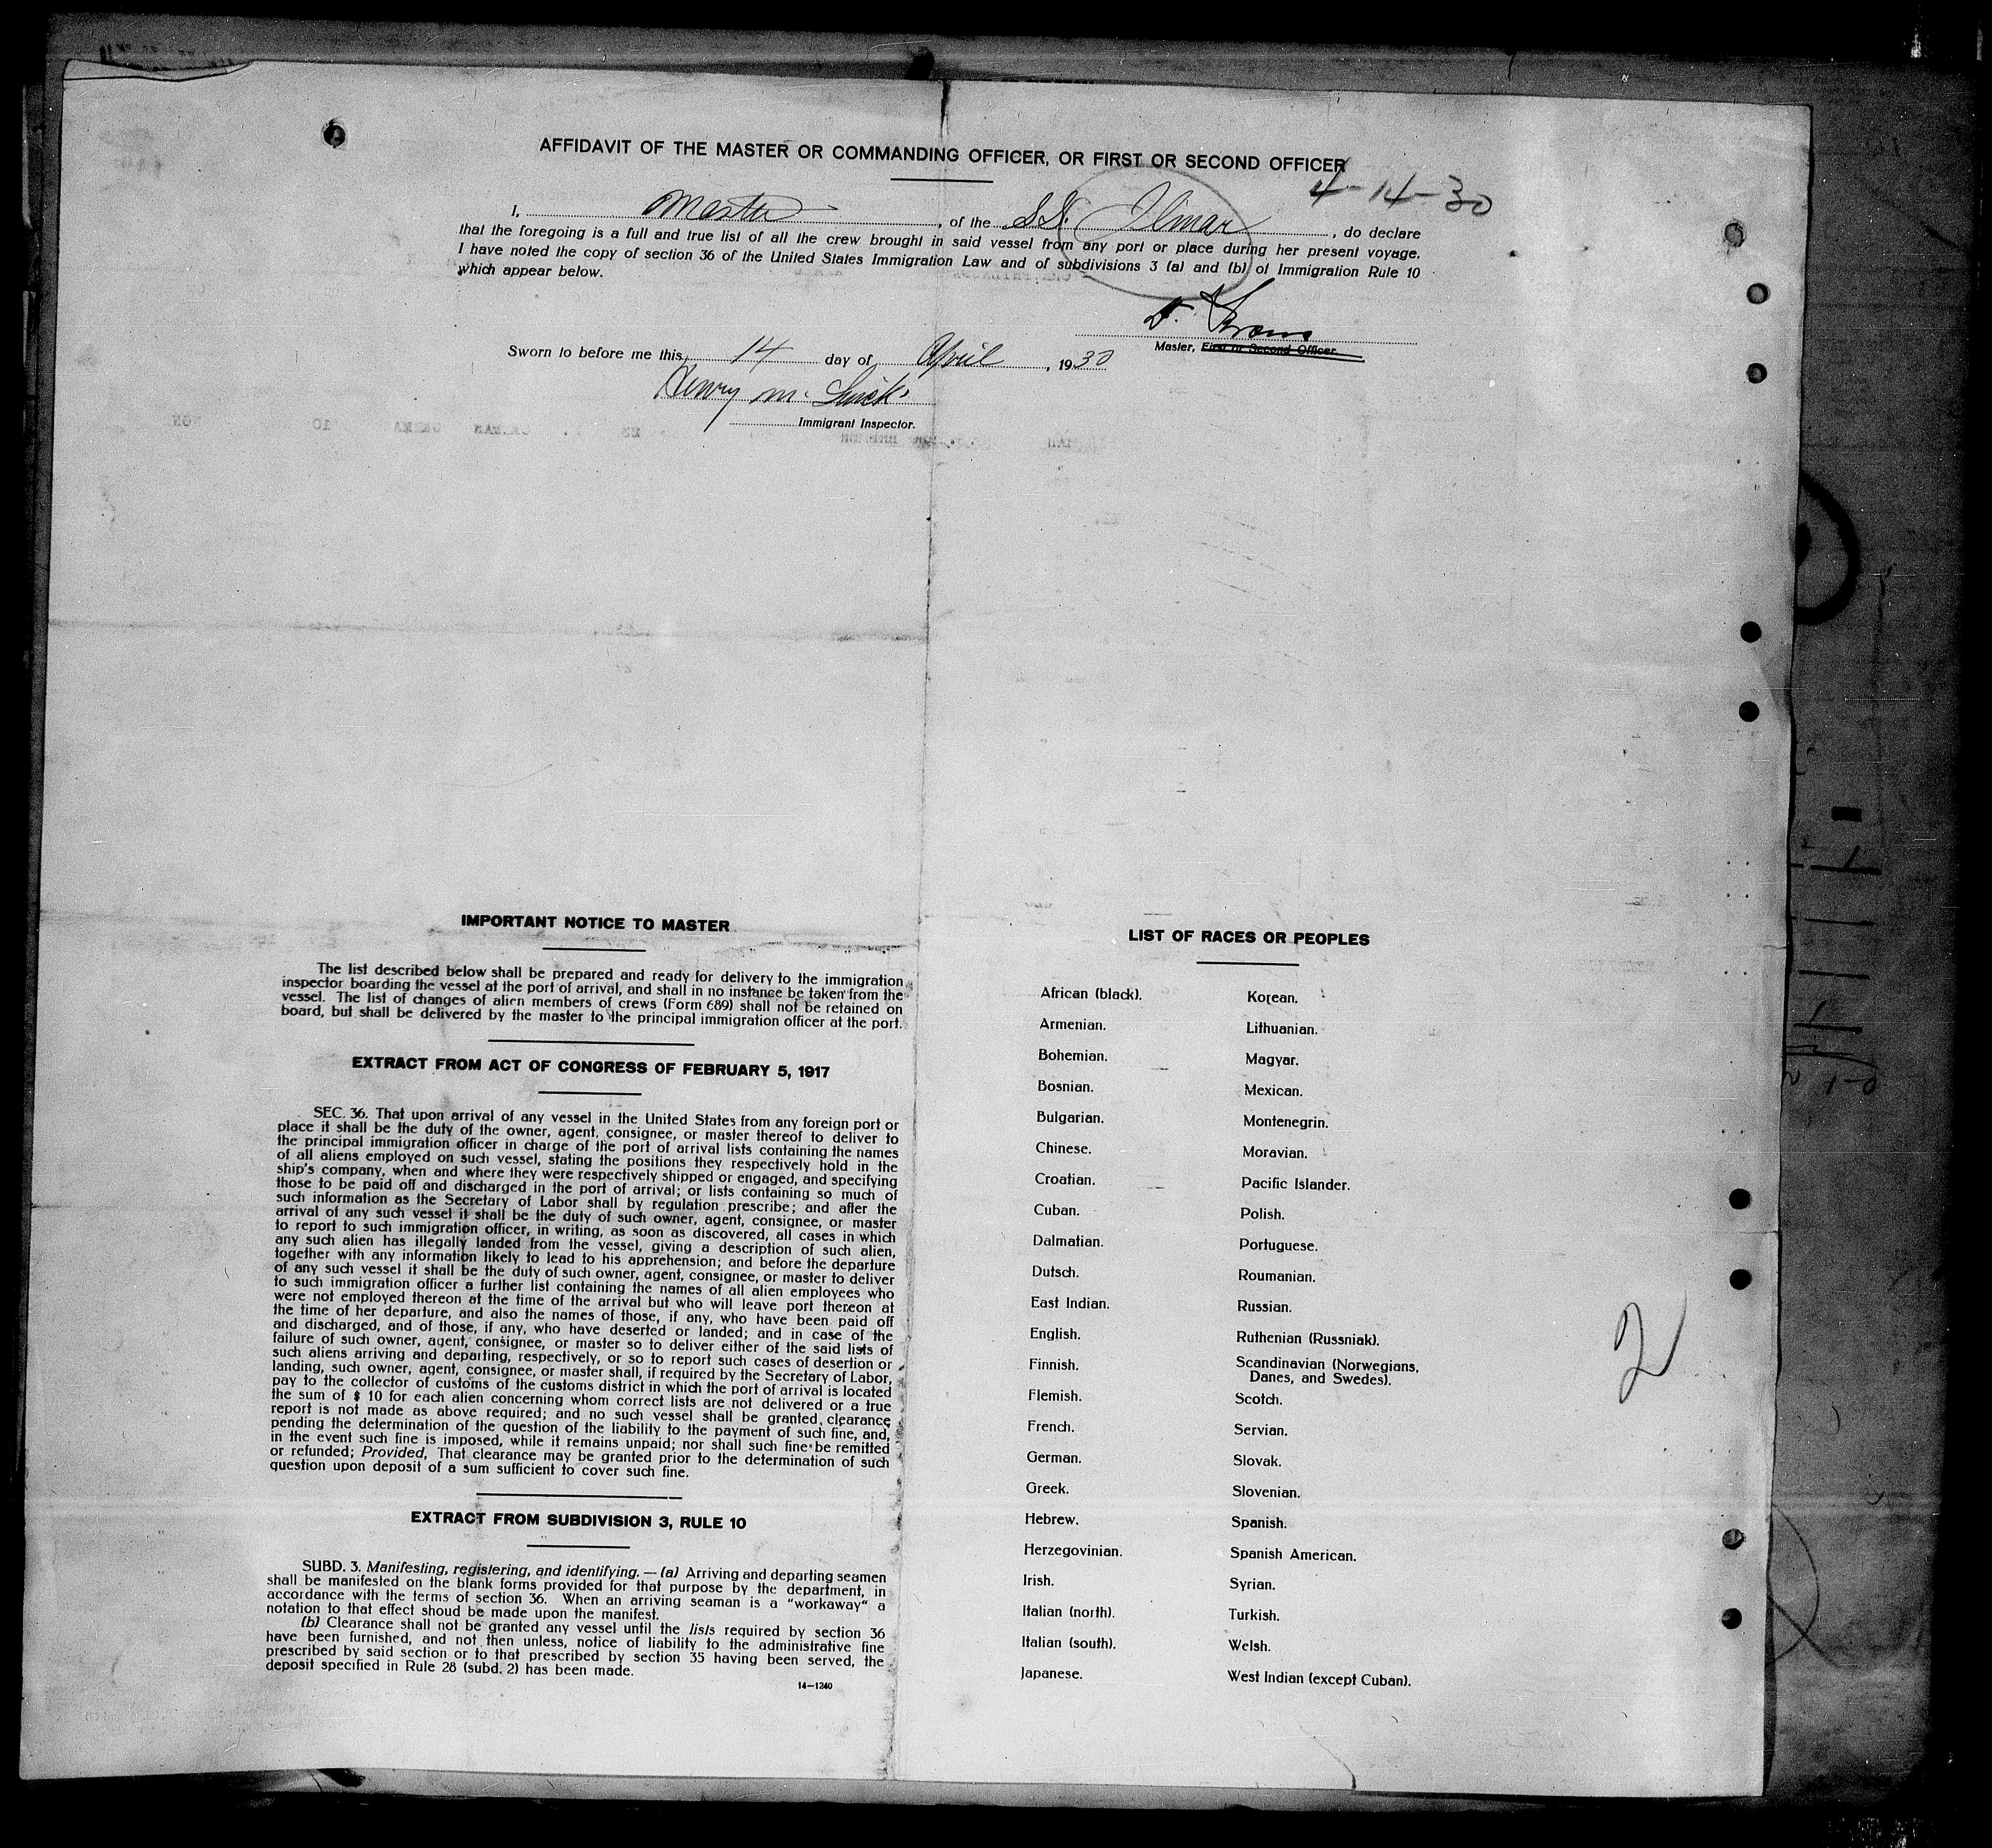 AFFIDAVIT OF THE MASTER OR COMMANDING OFFICER, OR FIRST OR SECOND OFFICER
4-14-30
I, Master, of the S.S. Ilmar, do declare
that the foregoing is a full and true list of all the crew brought in said vessel from any port or place during her present voyage.
I have noted the copy of section 36 of the United States Immigration Law and of subdivisions 3 (a) and (b) of Immigration Rule 10
which appear below.
Master, First or Second Officer.
Sworn to before me this 14 day of April, 1930
Henry M.
Immigrant Inspector.
IMPORTANT NOTICE TO MASTER
The list described below shall be prepared and ready for delivery to the immigration
inspector boarding the vessel at the port of arrival, and shall in no instance be taken from the
vessel. The list of changes of alien members of crews (Form 689) shall not be retained on
board, but shall be delivered by the master to the principal immigration officer at the port.
EXTRACT FROM ACT OF CONGRESS OF FEBRUARY 5, 1917
SEC. 36. That upon arrival of any vessel in the United States from any foreign port or
place it shall be the duty of the owner, agent, consignee, or master thereof to deliver to
the principal immigration officer in charge of the port of arrival lists containing the names
of all aliens employed on such vessel, stating the positions they respectively hold in the
ship's company, when and where they were respectively shipped or engaged, and specifying
those to be paid off and discharged in the port of arrival; or lists containing so much of
such information as the Secretary of Labor shall by regulation prescribe; and after the
arrival of any such vessel it shall be the duty of such owner, agent, consignee, or master
to report to such immigration officer, in writing, as soon as discovered, all cases in which
any such alien has illegally landed from the vessel, giving a description of such alien,
together with any information likely to lead to his apprehension; and before the departure
of any such vessel it shall be the duty of such owner, agent, consignee, or master to deliver
to such immigration officer a further list containing the names of all alien employees who
were not employed thereon at the time of the arrival but who will leave port thereon at
the time of her departure, and also the names of those, if any, who have been paid off
and discharged, and of those, if any, who have deserted or landed; and in case of the
failure of such owner, agent, consignee, or master so to deliver either of the said lists of
such aliens arriving and departing, respectively, or so to report such cases of desertion or
landing, such owner, agent, consignee, or master shall, if required by the Secretary of Labor,
pay to the collector of customs of the customs district in which the port of arrival is located
the sum of $ 10 for each alien concerning whom correct lists are not delivered or a true
report is not made as above required; and no such vessel shall be granted clearance
pending the determination of the question of the liability to the payment of such fine, and,
in the event such fine is imposed, while it remains unpaid; nor shall such fine be remitted
or refunded; Provided, That clearance may be granted prior to the determination of such
question upon deposit of a sum sufficient to cover such fine.
EXTRACT FROM SUBDIVISION 3, RULE 10
SUBD. 3. Manifesting, registering, and identifying. — (a) Arriving and departing seamen
shall be manifested on the blank forms provided for that purpose by the department, in
accordance with the terms of section 36. When an arriving seaman is a "workaway" a
notation to that effect shoud be made upon the manifest.
(b) Clearance shall not be granted any vessel until the lists required by section 36
have been furnished, and not then unless, notice of liability to the administrative fine
prescribed by said section or to that prescribed by section 35 having been served, the
deposit specified in Rule 28 (subd. 2) has been made.
14—1240
LIST OF RACES OR PEOPLES
African (black).
Armenian.
Bohemian.
Bosnian.
Bulgarian.
Chinese.
Croatian.
Cuban.
Dalmatian.
Dutsch.
East Indian.
English.
Finnish.
Flemish.
French.
German.
Greek.
Hebrew.
Herzegovinian.
Irish.
Italian (north).
Italian (south).
Japanese.
Korean.
Lithuanian.
Magyar.
Mexican.
Montenegrin.
Moravian.
Pacific Islander.
Polish.
Portuguese.
Roumanian.
Russian.
Ruthenian (Russniak).
Scandinavian (Norwegians,
Danes, and Swedes).
Scotch.
Servian.
Slovak.
Slovenian.
Spanish.
Spanish American.
Syrian.
Turkish.
Welsh.
West Indian (except Cuban).
2